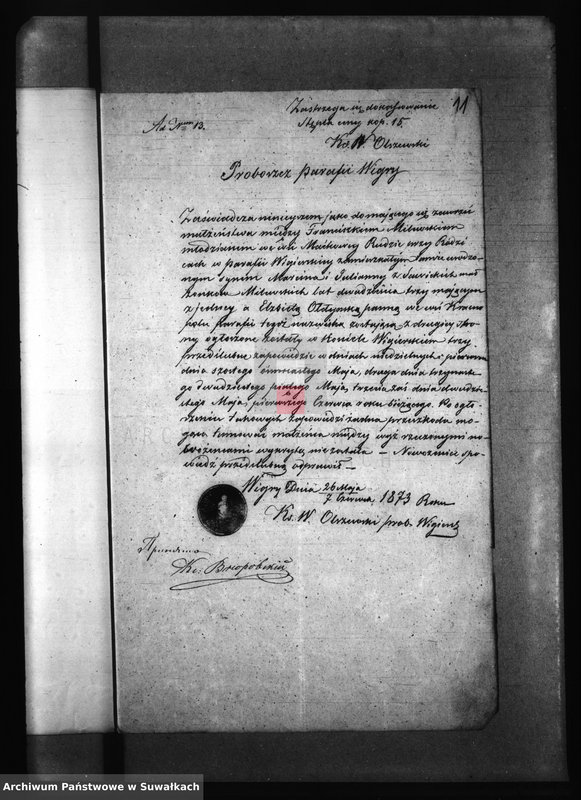 11
Zastrzega się dokasowanie
Stępla ceny kop. 15.
Ad Num 13.
Ks. W. Olszewski
Proboszcz parafii Wigry
Zaświadcza niniejszem jako do mającego się zawrzeć
małżeństwa między Franciszkiem Milewskiem
młodzianem we wsi Maćkowej Rudzie przy Rodzi
cach w parafii Wigierskiej zamieszkałym tamże urodzo-
nym synem Marcina i Julianny z Sawickich mał
żonków Milewskich lat dwadzieścia trzy mającym
z jednej a Elżbietą panną we wsi Krasno
polu parafii tegoż nazwiska zostającą z drugiej stro
ny ogłoszone zostały w Kościele Wigierskiem trzy
przedślubne zapowiedzie w dniach niedzielnych: pierwsza
dnia szóstego osiemnastego Maja, druga dnia trzynaste
go dwudziestego piątego Maja, trzecia zaś dnia dwudzie
stego Maja, pierwszego Czerwca roku bieżącego. Po ogło-
szeniu takowych zapowiedzi żadna przeszkoda mo-
gąca tamować małżeństwa między wyż rzeczonymi na-
rzeczonemi wykrytą nie została — Narzeczeni spo-
wiedź przedślubną odprawili —
Wigry Dnia 26 Maja
7 Czerwca, 1873 Roku
Ks. W. Olszewski prob. Wigiersk
Принято
Кс:
Archiwum Państwowe w Suwałkach